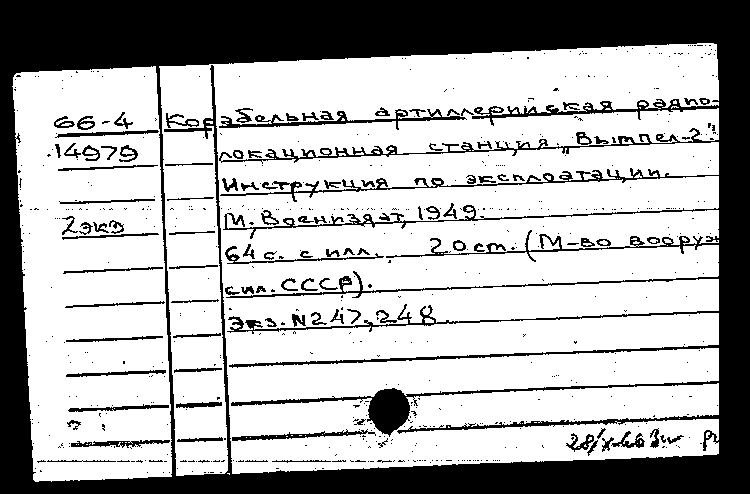 66-4 Корабельная артиллерийская радио-
14979 локационная станция „Вымпел-2".
Инструкция по эксплоатации.
2экз М., Воениздат, 1949.
64 с. с илл. 20 ст. (М-во вооруж
сил. СССР).
Экз. N247, 248.
28/X-66